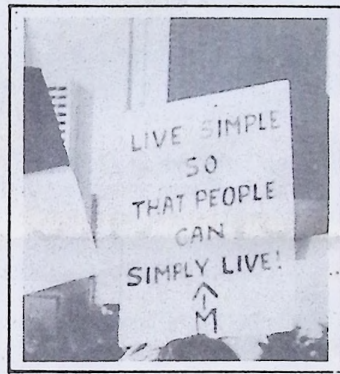 LIVE SIMPLE
SO
THAT PEOPLE
CAN
SIMPLY LIVE!
M